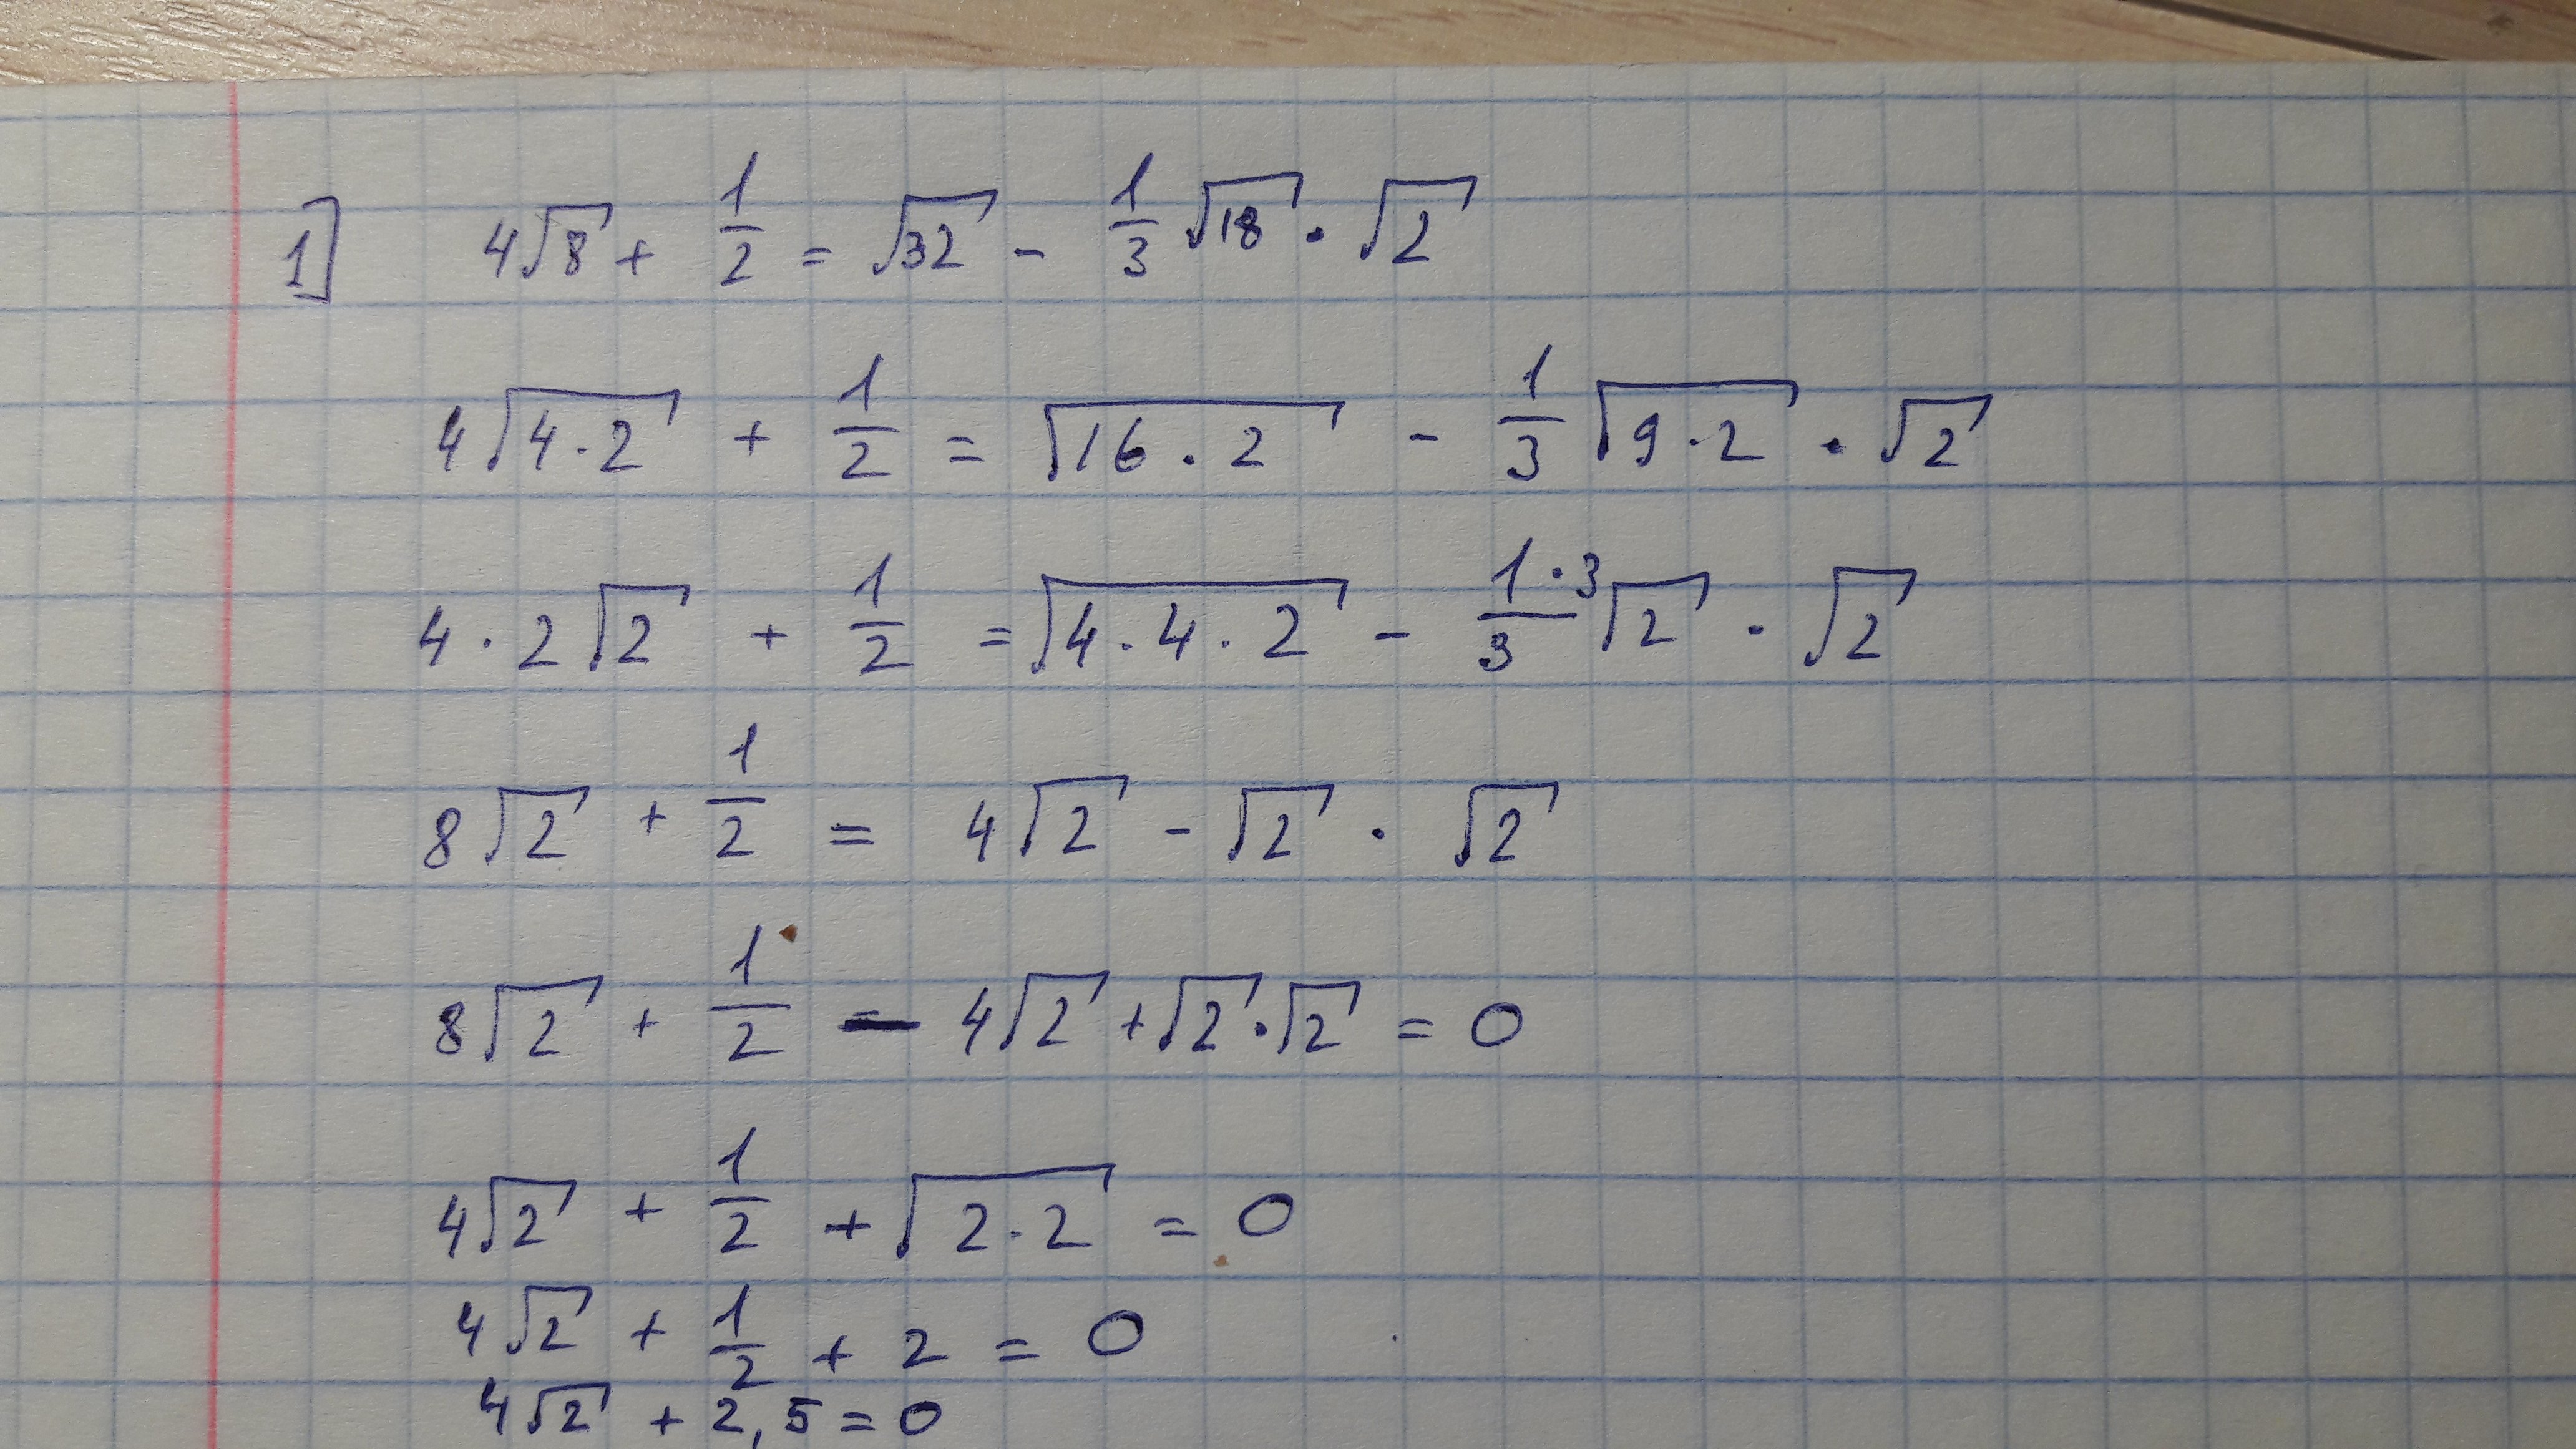 1] 4√8 + 1/2 = √32 - 1/3 √18 · √2
4√(4·2) + 1/2 = √(16·2) - 1/3 √(9·2) · √2
4·2√2 + 1/2 = √(4·4·2) - (1·3)/3 √2 · √2
8√2 + 1/2 = 4√2 - √2 · √2
8√2 + 1/2 - 4√2 + √2·√2 = 0
4√2 + 1/2 + √(2·2) = 0
4√2 + 1/2 + 2 = 0
4√2 + 2,5 = 0